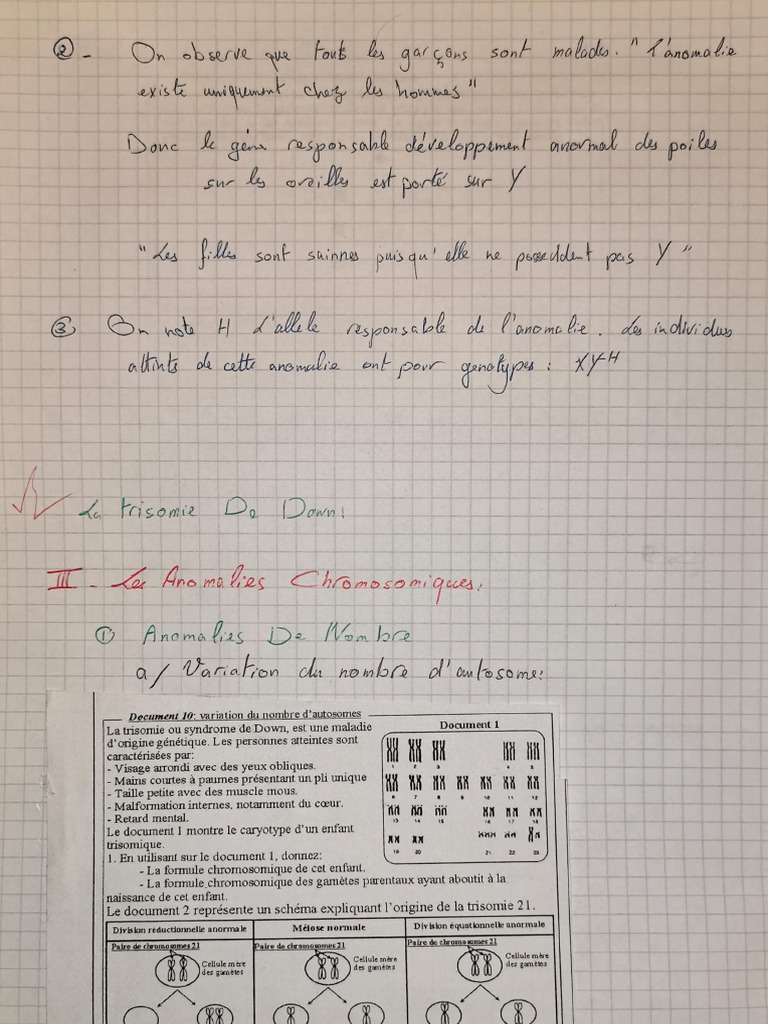 ② - On observe que touts les garçons sont malades. "L'anomalie
existe uniquement chez les hommes"
Donc le géne responsable développement anormal des poiles
sur les oreilles est porté sur Y
"Les filles sont sainnes puisqu'elle ne posseddent pas Y"
③ On note H L'allele responsable de l'anomalie. Les individus
attints de cette anomalie ont pour genotypes : XY^H
La trisomie De Down:
III - Les Anomalies Chromosomiques:
① Anomalies De Nombre
a/ Variation du nombre d'autosome:
Document 10: variation du nombre d'autosomes
La trisomie ou syndrome de Down, est une maladie
d'origine génétique. Les personnes atteintes sont
caractérisées par:
- Visage arrondi avec des yeux obliques.
- Mains courtes à paumes présentant un pli unique
- Taille petite avec des muscle mous.
- Malformation internes, notamment du cœur.
- Retard mental.
Le document 1 montre le caryotype d'un enfant
trisomique.
1. En utilisant sur le document 1, donnez:
- La formule chromosomique de cet enfant.
- La formule chromosomique des gamètes parentaux ayant aboutit à la
naissance de cet enfant.
Document 1
1 2 3 4 5
6 7 8 9 10 11 12
13 14 15 16 17 18
19 20 21 22 23
Le document 2 représente un schéma expliquant l'origine de la trisomie 21.
Division réductionnelle anormale Méiose normale Division équationnelle anormale
Paire de chromosomes 21 Paire de chromosomes 21 Paire de chromosomes 21
Cellule mère Cellule mère Cellule mère
des gamètes des gamètes des gamètes